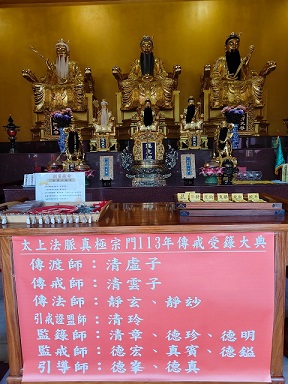 太上法脈真極宗門113年傳戒受籙大典
傳渡師：清虛子
傳戒師：清雲子
傳法師：靜玄、靜玅
引戒證盟師：清玲
監籙師：清章、德珍、德明
監戒師：德宏、真賓、德鎰
引導師：德峯、德真